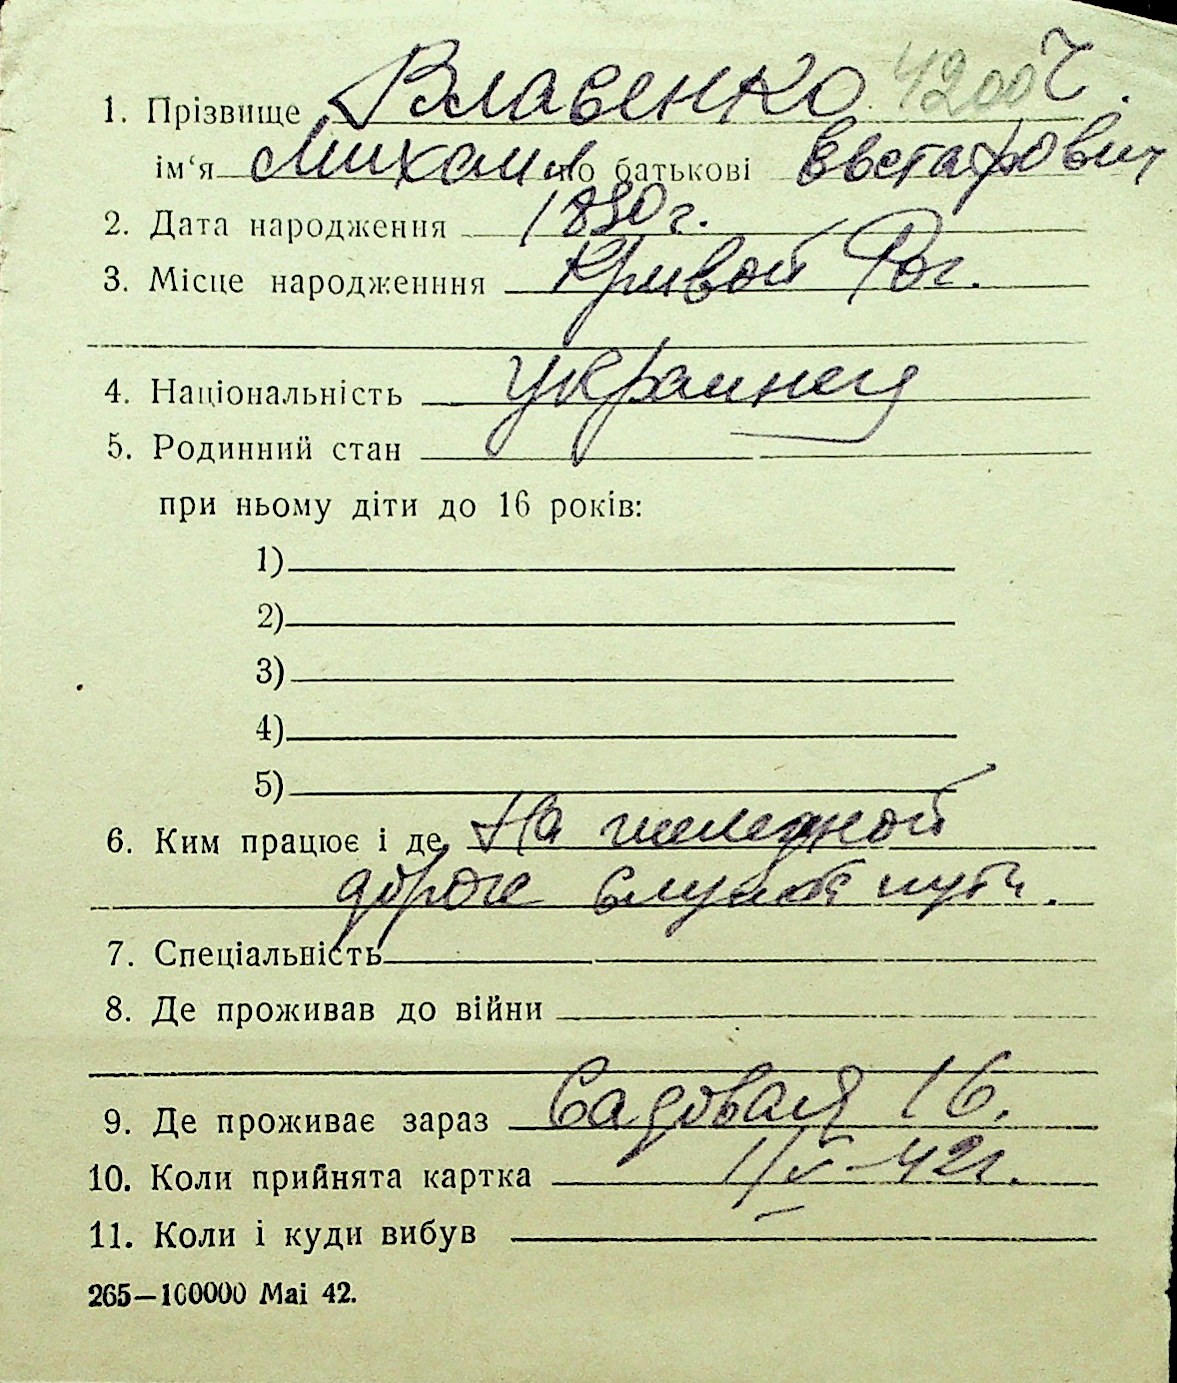 1. Прізвище Власенко 4200 Ч.
ім‘я Михаил по батькові Евстафович
2. Дата народження 1890 г.
3. Місце народженння Кривой Рог.
4. Національність украинец
5. Родинний стан
при ньому діти до 16 років:
1)
2)
3)
4)
5)
6. Ким працює і де На железной
дороге служба пути.
7. Спеціальність
8. Де проживав до війни
9. Де проживає зараз Садовая 16.
10. Коли прийнята картка 1/X-42г.
11. Коли і куди вибув
265—100000 Mai 42.